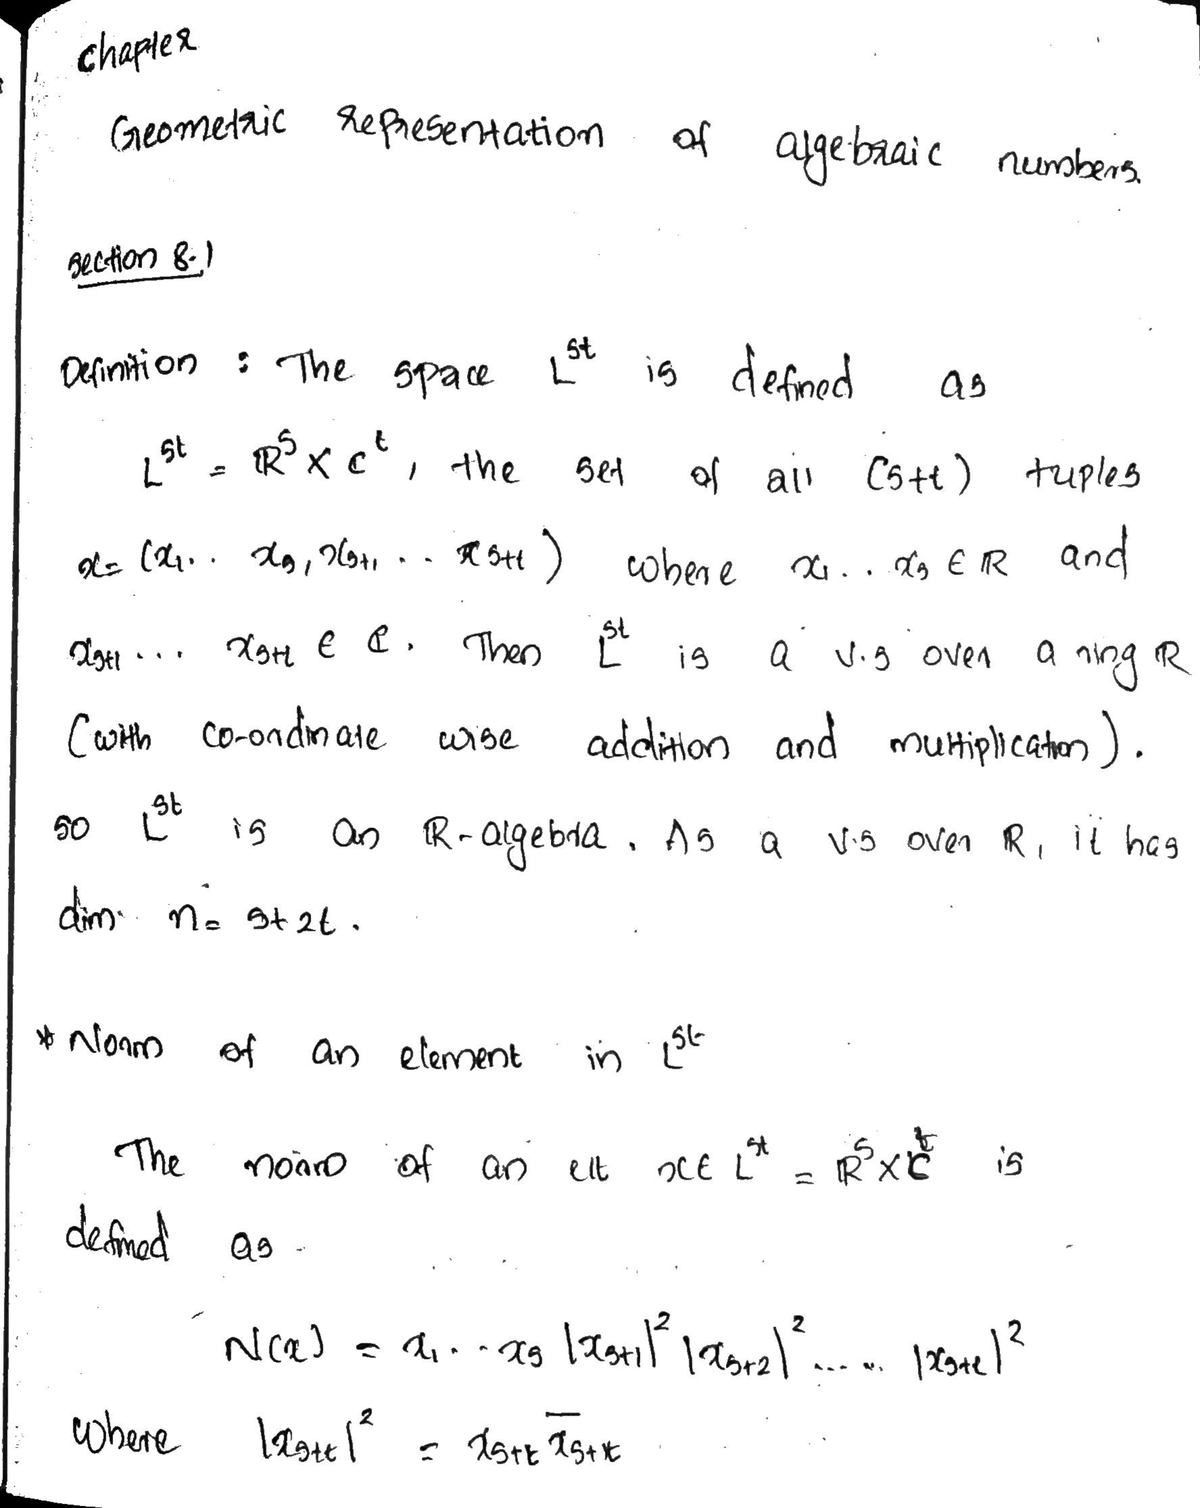 chapter
Geometric representation of algebraic numbers.
section 8.1
Definition : The space L^st is defined as
L^st = ℝ^s × C^t, the set of all (s+t) tuples
x = (x₁.. x_s, x_{s+1} .. x_{s+t}) where x₁.. x_s ∈ ℝ and
x_{s+1} ... x_{s+t} ∈ ℂ. Then L^st is a v.s over a ring ℝ
(with co-ordinate wise addition and multiplication).
so L^st is an ℝ-algebra. As a v.s over ℝ, it has
dim n = s+2t.
* Norm of an element in L^st
The norm of an elt x ∈ L^st = ℝ^s × C^t is
defined as
N(x) = x₁...x_s |x_{s+1}|² |x_{s+2}|² ..... |x_{s+t}|²
where |x_{s+t}|² = x_{s+t} x̄_{s+t}